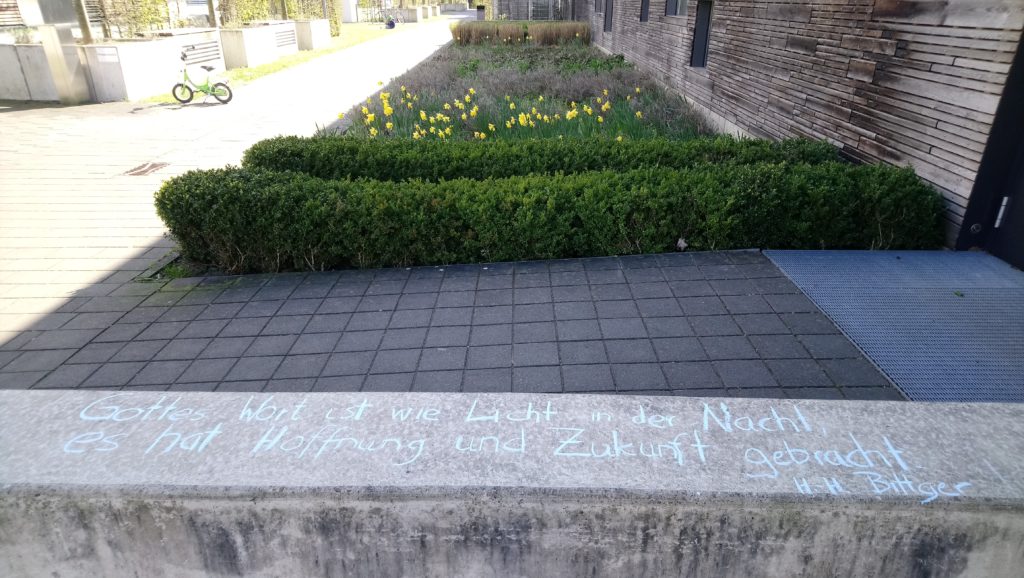 Gottes Wort ist wie Licht in der Nacht,
es hat Hoffnung und Zukunft gebracht.
H.-H. Bittger